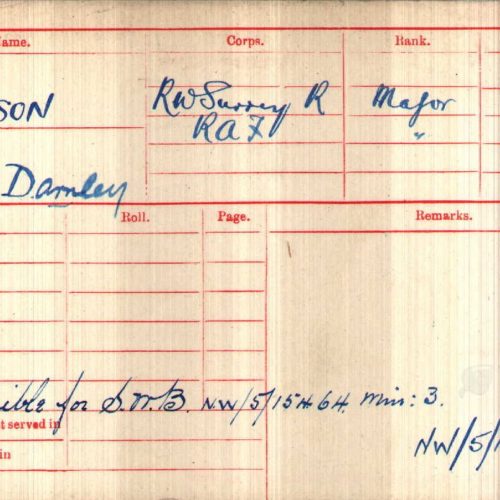 Name. Corps. Rank.
SON RW Surrey R Major
RAF "
Darnley
Roll. Page. Remarks.
ible for S.W.B. NW/5/15464. Min: 3.
t served in
NW/5/1
in